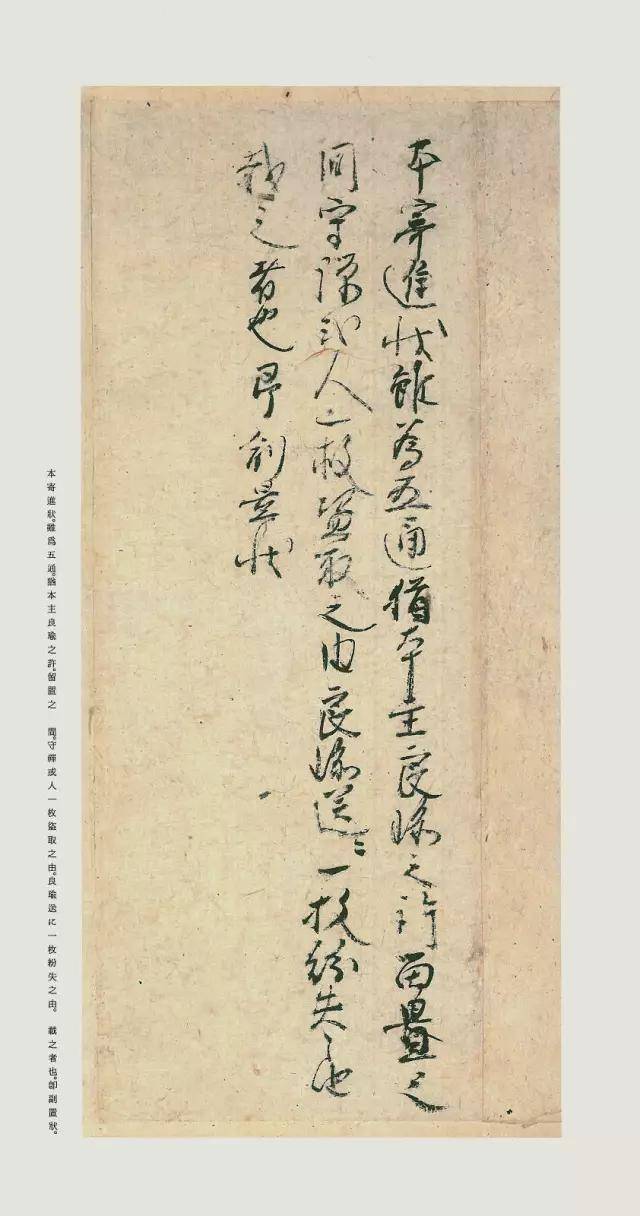 本寄進状雖為五通猶本主良瑜之許留置之
間守禅或人一枚盗取之由良瑜送ニ一枚紛失之由
載之者也即副置状
本寄進狀。雖爲五通。猶本主良瑜之許。留置之　間。守禪或人一枚盜取之由。良瑜送に一枚粉失之由。　載之者也。卽副置狀。